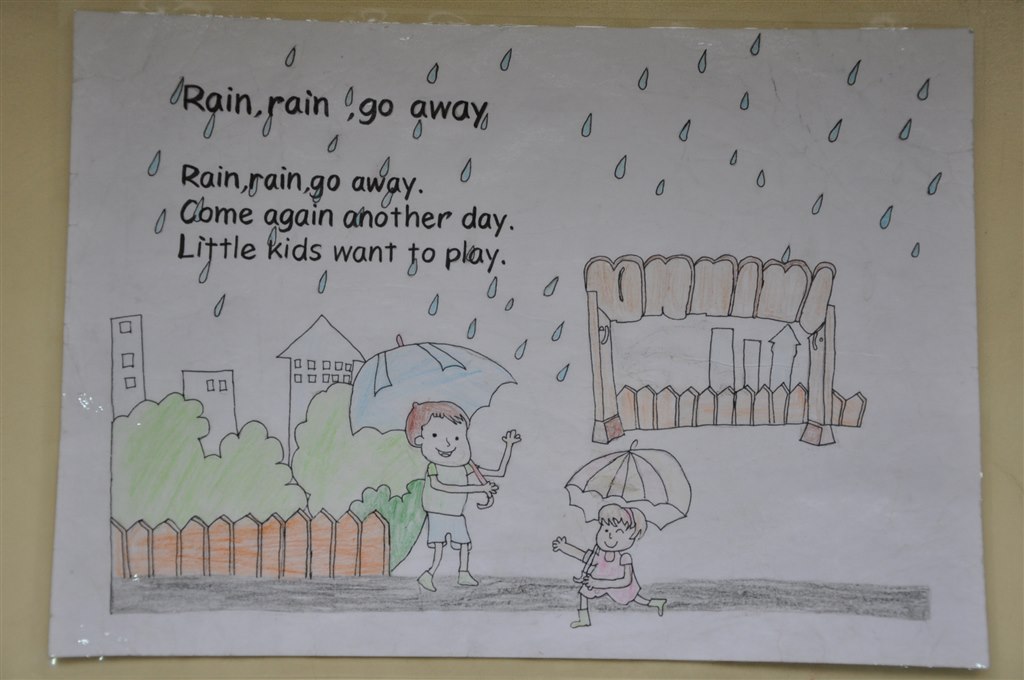 Rain,rain ,go away
Rain,rain,go away.
Come again another day.
Little kids want to play.